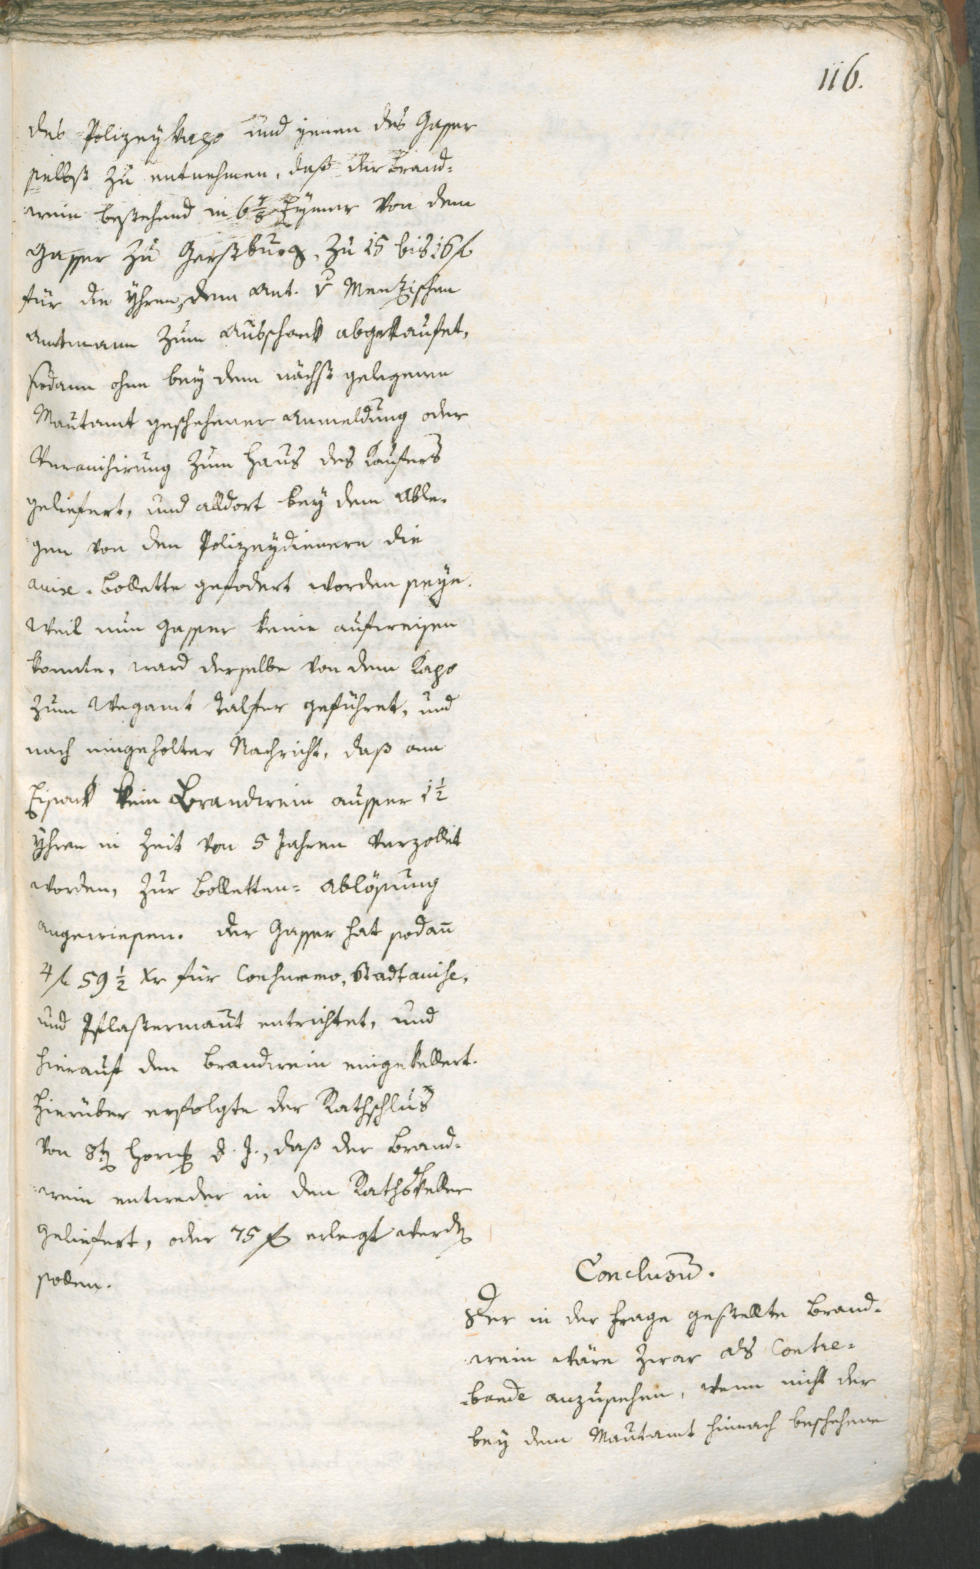 116.
des Polizeykapo und jenen des Gasser
selbst zu entnehmen, daß der Brand-
wein bestehend in 6⅞ Eymer von dem
Gasser zu Gerstburg, zu 15 bis 16 f
für die Yhren, dem Ant. v Menzischen
Amtmann zum Ausschank abgekaufet,
sodann ohne bey dem nächst gelegenen
Mautamt geschehener Anmeldung oder
Veravisirung zum Haus des Kaufers
geliefert, und alldort bey dem Able-
gen von den Polizeydienern die
avise-Bollette gefodert worden seye.
Weil nun Gasser keine aufweisen
konnte, ward derselbe von dem Kapo
zum Wegamt Talfer geführet, und
nach eingeholter Nachricht, daß am
Eisack kein Brandwein ausser 1½
Yhren in Zeit von 5 Jahren verzollt
worden, zur Bolletten-Ablösung
angewiesen. Der Gasser hat sodann
4 f 59½ xr für Consumo, Stadtavise,
und Pflastermaut entrichtet, und
hierauf den Brandwein eingekellert.
Hierüber erfolgte der Rathschlus
von 8ten Hornung d. J., daß der Brand-
wein entweder in den Rathskeller
geliefert, oder 75 f erlegt werden
sollen.
Conclusum.
Der in der Frage gestellte Brand-
wein wäre zwar als Contre-
bande anzusehen, wenn nicht der
bey dem Mautamt hienach beschehene